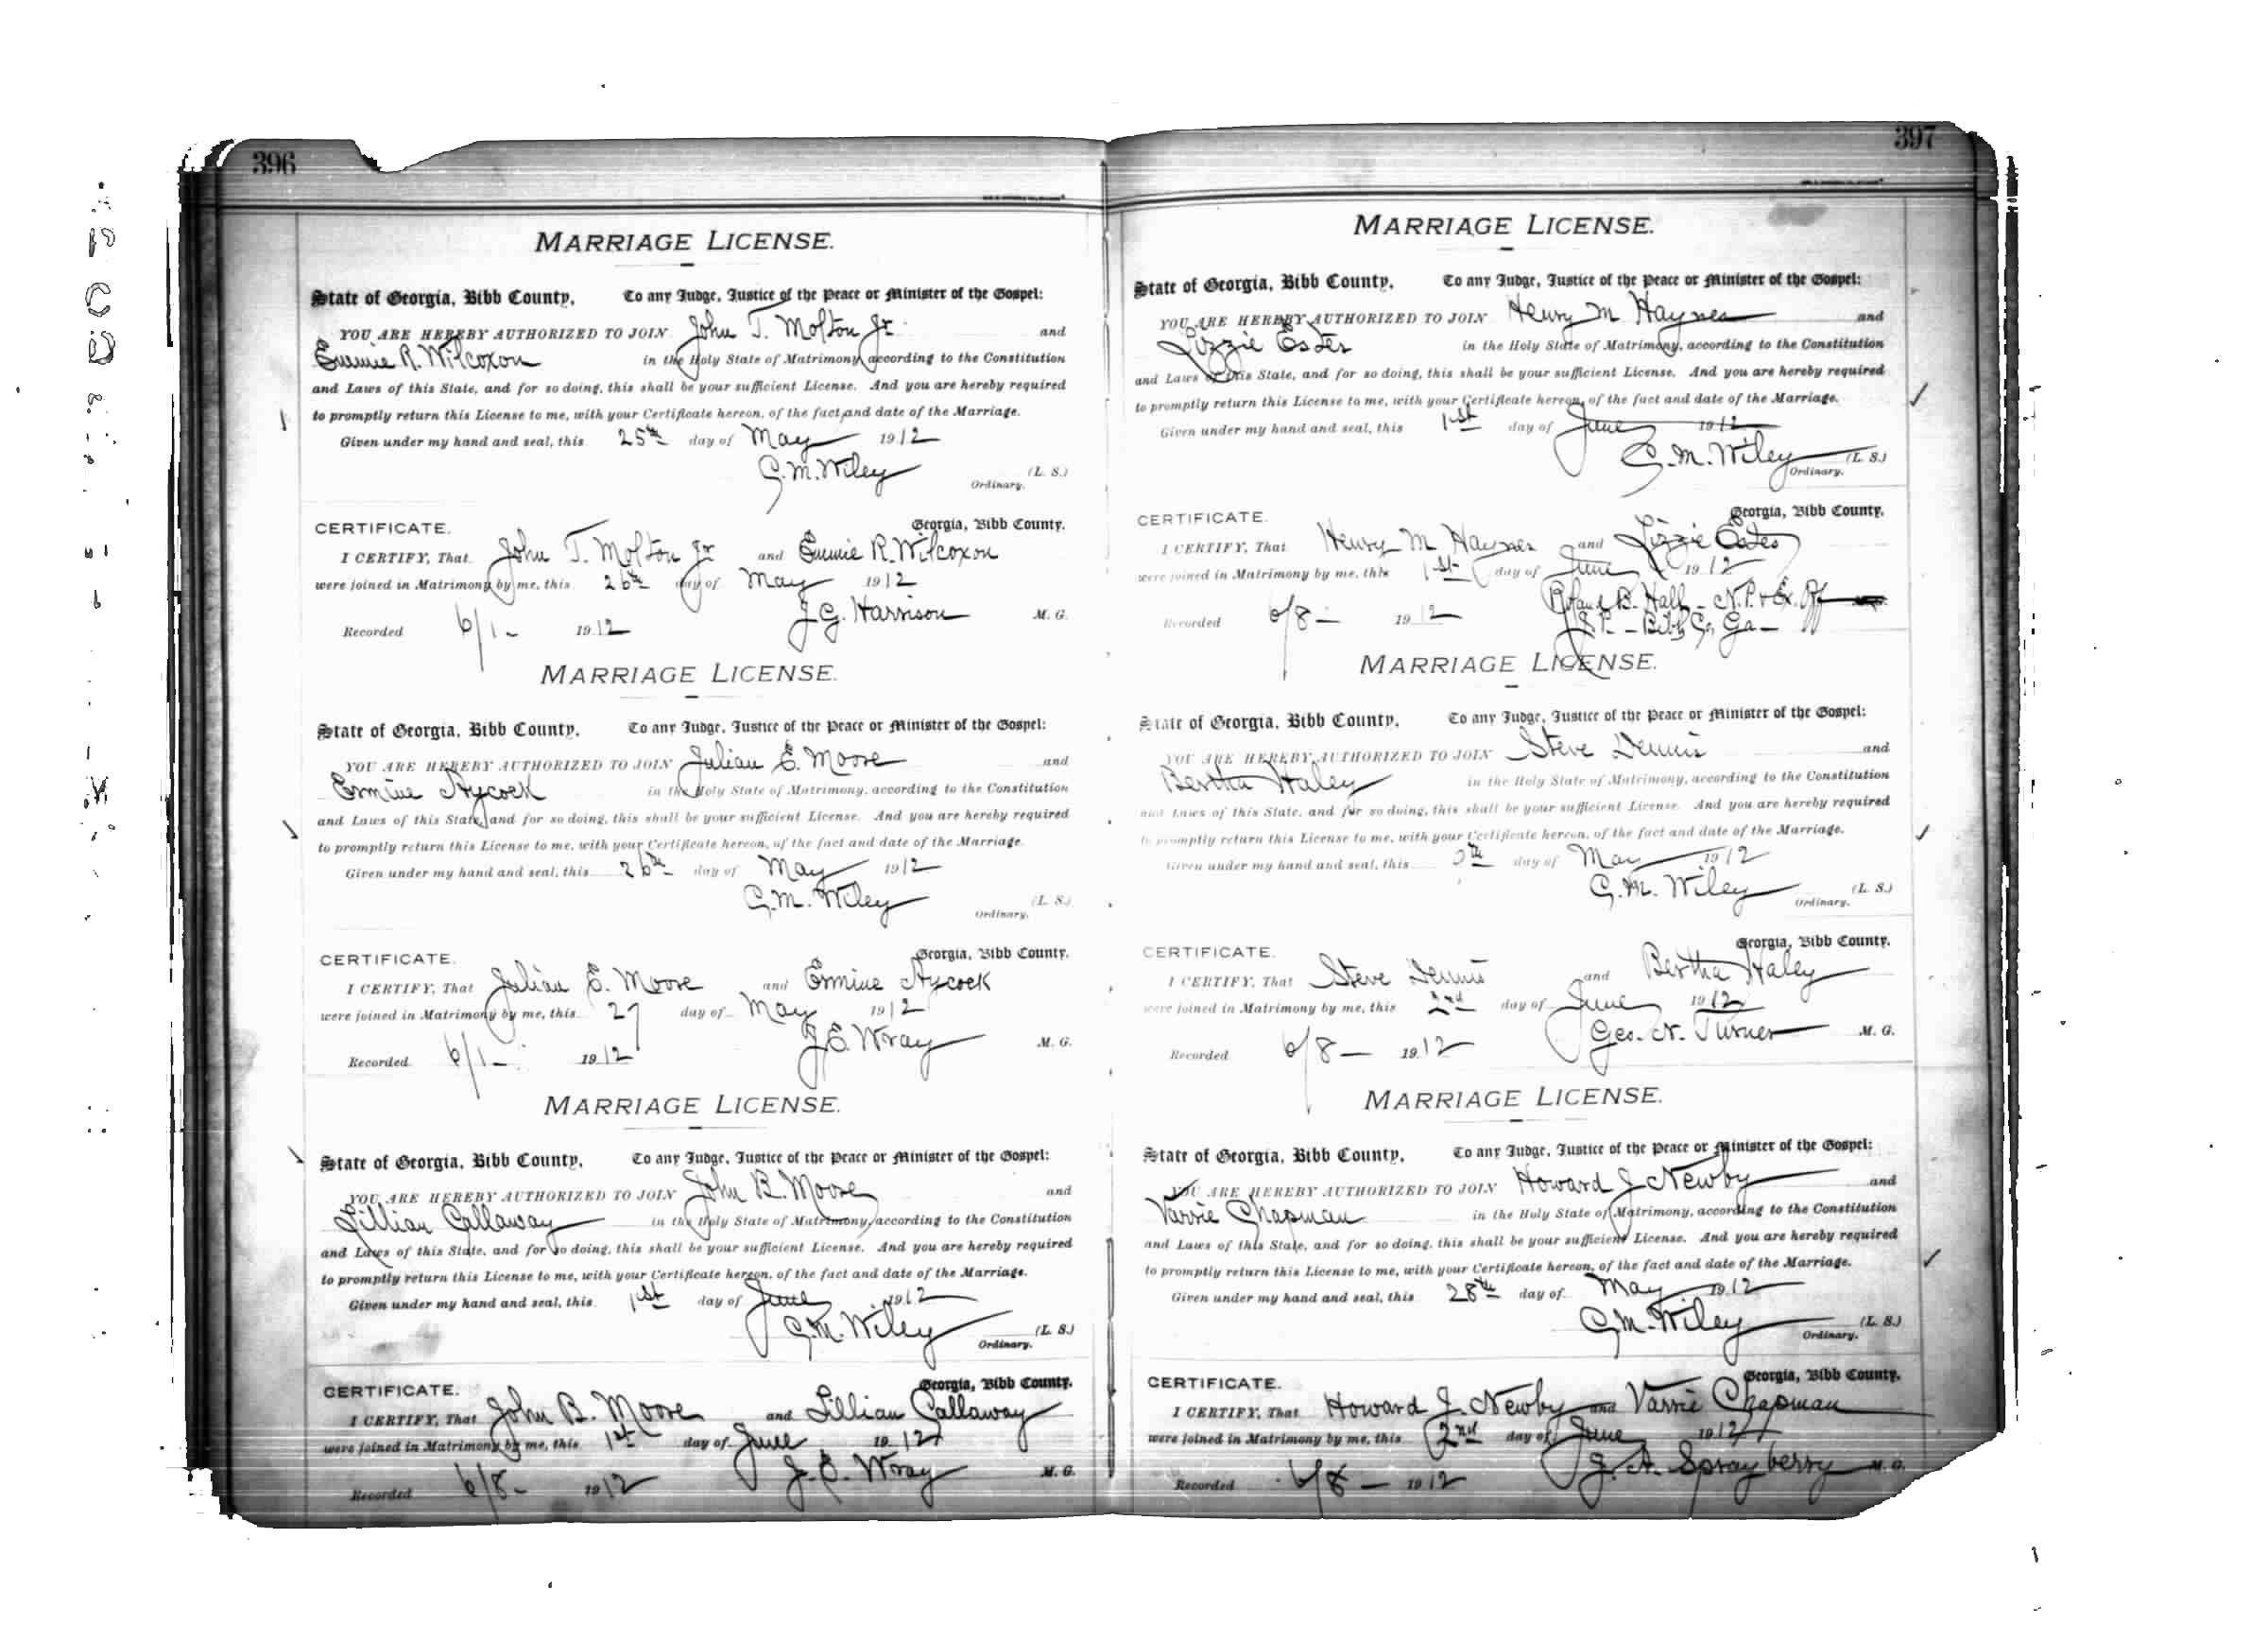 396
MARRIAGE LICENSE.
State of Georgia, Bibb County. To any Judge, Justice of the Peace or Minister of the Gospel:
YOU ARE HEREBY AUTHORIZED TO JOIN John T. Molton Jr. and
Emmie R. Wilcoxon in the Holy State of Matrimony, according to the Constitution
and Laws of this State, and for so doing, this shall be your sufficient License. And you are hereby required
to promptly return this License to me, with your Certificate hereon, of the fact and date of the Marriage.
Given under my hand and seal, this 25th day of May 1912
C. M. Wiley (L. S.)
Ordinary.
CERTIFICATE. Georgia, Bibb County.
I CERTIFY, That John T. Molton Jr and Emmie R. Wilcoxon
were joined in Matrimony by me, this 26th day of May 1912
J. G. Harrison M. G.
Recorded 6/1- 1912
MARRIAGE LICENSE.
State of Georgia, Bibb County. To any Judge, Justice of the Peace or Minister of the Gospel:
YOU ARE HEREBY AUTHORIZED TO JOIN Julian E. Moore and
Ermine Aycock in the Holy State of Matrimony, according to the Constitution
and Laws of this State, and for so doing, this shall be your sufficient License. And you are hereby required
to promptly return this License to me, with your Certificate hereon, of the fact and date of the Marriage.
Given under my hand and seal, this 26th day of May 1912
C. M. Wiley (L. S.)
Ordinary.
CERTIFICATE. Georgia, Bibb County.
I CERTIFY, That Julian E. Moore and Ermine Aycock
were joined in Matrimony by me, this 27 day of May 1912
J. E. Wray M. G.
Recorded 6/1- 1912
MARRIAGE LICENSE.
State of Georgia, Bibb County. To any Judge, Justice of the Peace or Minister of the Gospel:
YOU ARE HEREBY AUTHORIZED TO JOIN John B. Moore and
Lillian Callaway in the Holy State of Matrimony, according to the Constitution
and Laws of this State, and for so doing, this shall be your sufficient License. And you are hereby required
to promptly return this License to me, with your Certificate hereon, of the fact and date of the Marriage.
Given under my hand and seal, this 1st day of June 1912
C. M. Wiley (L. S.)
Ordinary.
CERTIFICATE. Georgia, Bibb County.
I CERTIFY, That John B. Moore and Lillian Callaway
were joined in Matrimony by me, this 1st day of June 1912
J. E. Wray M. G.
Recorded 6/8- 1912
397
MARRIAGE LICENSE.
State of Georgia, Bibb County. To any Judge, Justice of the Peace or Minister of the Gospel:
YOU ARE HEREBY AUTHORIZED TO JOIN Henry M Haynes and
Lizzie Estes in the Holy State of Matrimony, according to the Constitution
and Laws of this State, and for so doing, this shall be your sufficient License. And you are hereby required
to promptly return this License to me, with your Certificate hereon, of the fact and date of the Marriage.
Given under my hand and seal, this 1st day of June 1912
C. M. Wiley (L. S.)
Ordinary.
CERTIFICATE. Georgia, Bibb County.
I CERTIFY, That Henry M Haynes and Lizzie Estes
were joined in Matrimony by me, this 1st day of June 1912
Roland B. Hall - N. P. & Ex. Off
Recorded 6/8- 1912 J. P. - Bibb Co, Ga -
MARRIAGE LICENSE.
State of Georgia, Bibb County. To any Judge, Justice of the Peace or Minister of the Gospel:
YOU ARE HEREBY AUTHORIZED TO JOIN Steve Dennis and
Bertha Haley in the Holy State of Matrimony, according to the Constitution
and Laws of this State, and for so doing, this shall be your sufficient License. And you are hereby required
to promptly return this License to me, with your Certificate hereon, of the fact and date of the Marriage.
Given under my hand and seal, this day of May 1912
C. M. Wiley (L. S.)
Ordinary.
CERTIFICATE. Georgia, Bibb County.
I CERTIFY, That Steve Dennis and Bertha Haley
were joined in Matrimony by me, this 2nd day of June 1912
Geo. N. Turner M. G.
Recorded 6/8- 1912
MARRIAGE LICENSE.
State of Georgia, Bibb County. To any Judge, Justice of the Peace or Minister of the Gospel:
YOU ARE HEREBY AUTHORIZED TO JOIN Howard J Newby and
Varrie Chapman in the Holy State of Matrimony, according to the Constitution
and Laws of this State, and for so doing, this shall be your sufficient License. And you are hereby required
to promptly return this License to me, with your Certificate hereon, of the fact and date of the Marriage.
Given under my hand and seal, this 28th day of May 1912
C. M. Wiley (L. S.)
Ordinary.
CERTIFICATE. Georgia, Bibb County.
I CERTIFY, That Howard J. Newby and Varrie Chapman
were joined in Matrimony by me, this 2nd day of June 1912
J. A. Sprayberry M. G.
Recorded 6/8- 1912